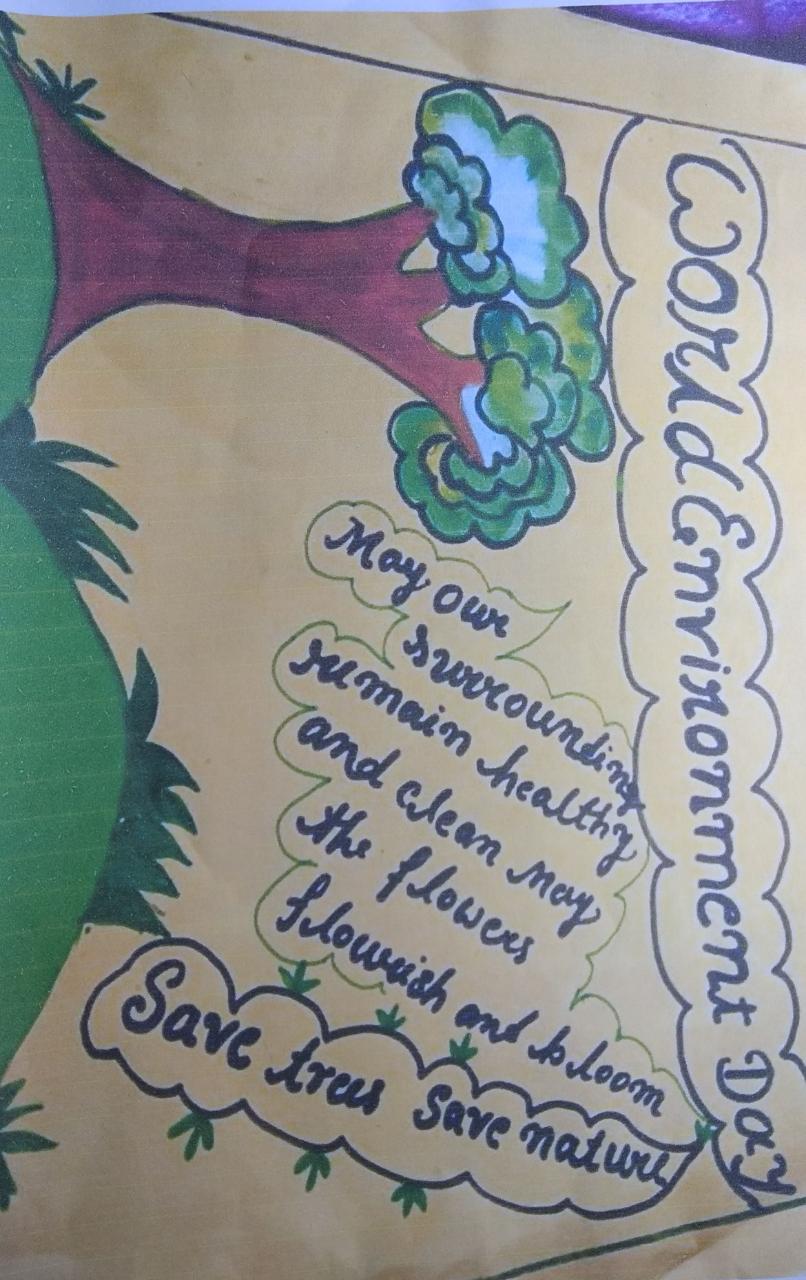 World Environment Day
May our
surrounding
remain healthy
and clean May
the flowers
flourish and bloom
Save trees Save nature